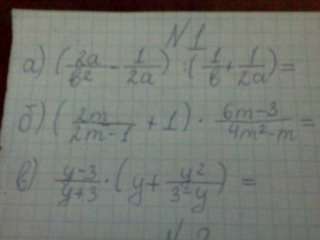 №1
а) (2a/b² - 1/2a) : (1/b + 1/2a) =
б) (2m/2m-1 + 1) · 6m-3/4m²-m =
в) y-3/y+3 · (y + y²/3-y) =